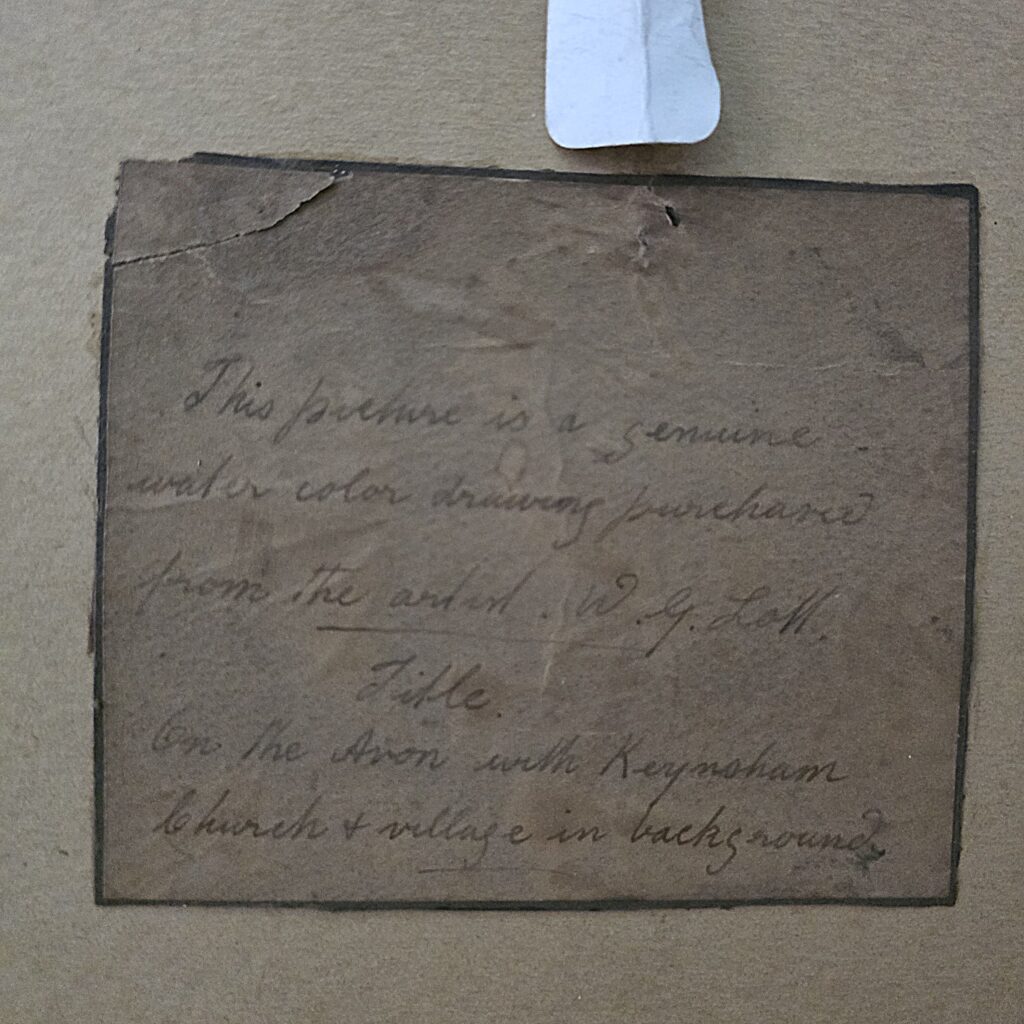 This picture is a genuine
water color drawing purchased
from the artist. W. G. Lott.
Title.
On the Avon with Keynsham
Church & village in background.